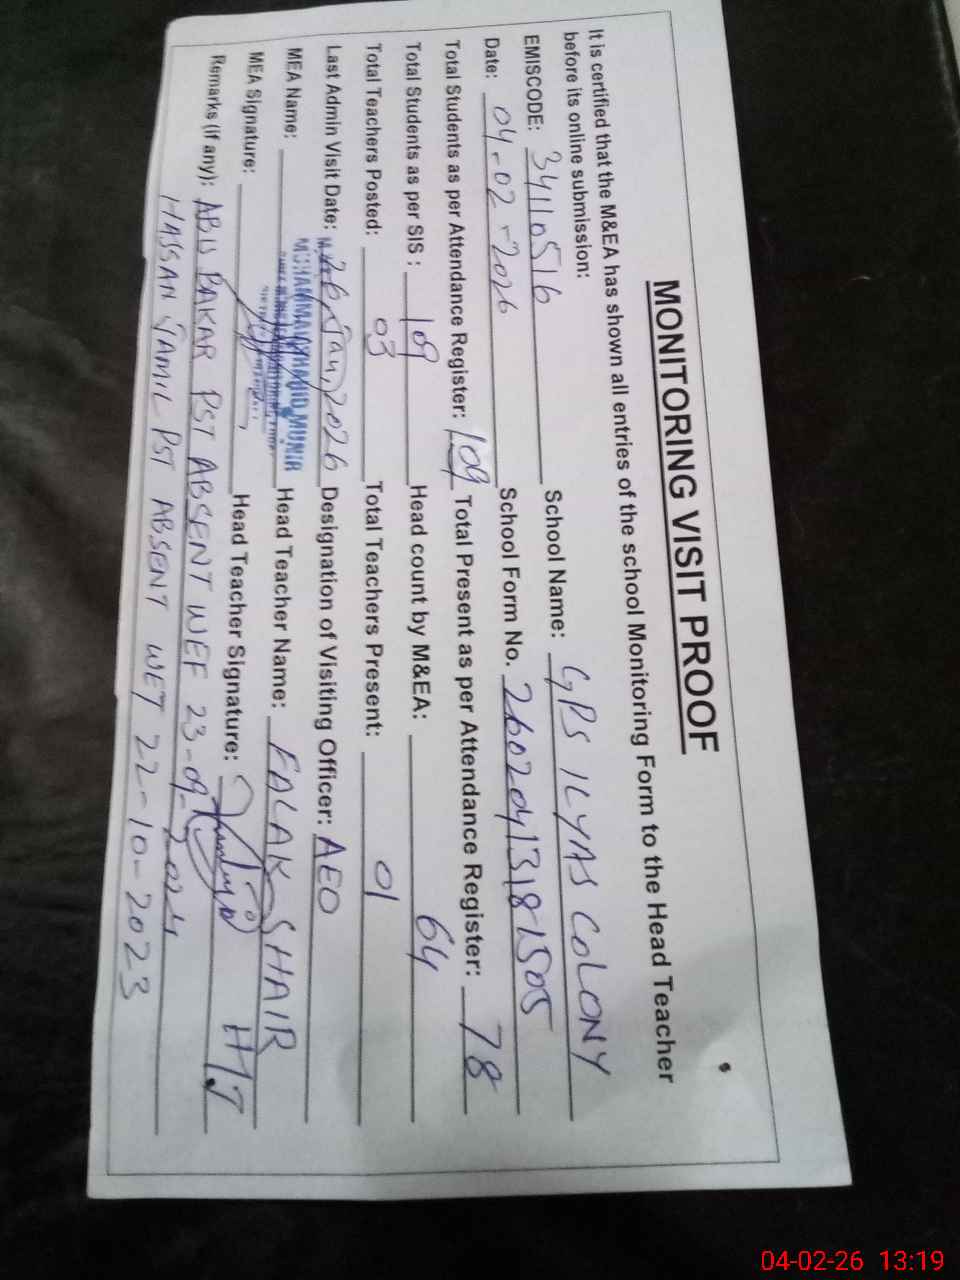 MONITORING VISIT PROOF
It is certified that the M&EA has shown all entries of the school Monitoring Form to the Head Teacher
before its online submission:
EMISCODE: 34110516 School Name: GPS ILYAS COLONY
Date: 04-02-2026 School Form No. 26020413181505
Total Students as per Attendance Register: 109 Total Present as per Attendance Register: 78
Total Students as per SIS: 109 Head count by M&EA: 64
Total Teachers Posted: 03 Total Teachers Present: 01
Last Admin Visit Date: 26, Jan, 2026 Designation of Visiting Officer: AEO
MEA Name: MUHAMMAD MUNIR Head Teacher Name: FALAK SHAIR
MEA Signature: Head Teacher Signature: HT
Remarks (if any): ABU BAKAR PST ABSENT WEF 23-09-2024
HASSAN JAMIL PST ABSENT WEF 22-10-2023
04-02-26 13:19